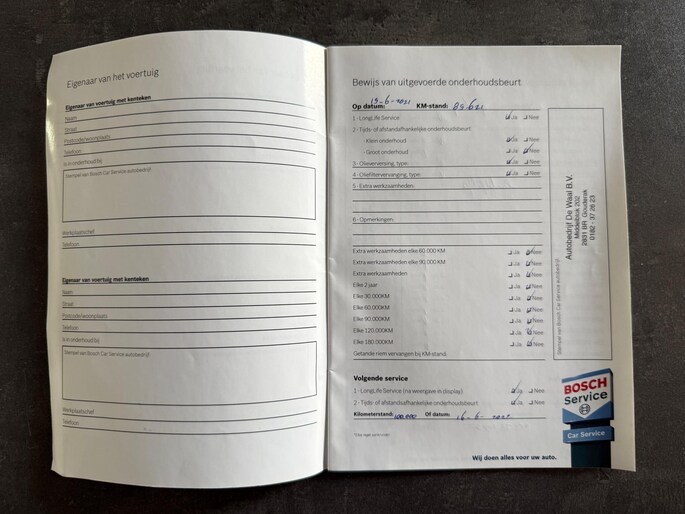 Eigenaar van het voertuig
Eigenaar van voertuig met kenteken
Naam
Straat
Postcode/woonplaats
Telefoon
Is in onderhoud bij
Stempel van Bosch Car Service autobedrijf
Werkplaatschef
Telefoon
Eigenaar van voertuig met kenteken
Naam
Straat
Postcode/woonplaats
Telefoon
Is in onderhoud bij
Stempel van Bosch Car Service autobedrijf
Werkplaatschef
Telefoon
Bewijs van uitgevoerde onderhoudsbeurt
Op datum: 15-6-2021 KM-stand: 89.621
1 - LongLife Service Ja Nee
2 - Tijds- of afstandsafhankelijke onderhoudsbeurt
- Klein onderhoud Ja Nee
- Groot onderhoud Ja Nee
3 - Olieverversing, type: Ja Nee
4 - Oliefiltervervanging, type: Ja Nee
5 - Extra werkzaamheden:
6 - Opmerkingen:
Extra werkzaamheden elke 60.000 KM Ja Nee
Extra werkzaamheden elke 90.000 KM Ja Nee
Extra werkzaamheden Ja Nee
Elke 2 jaar Ja Nee
Elke 30.000KM Ja Nee
Elke 60.000KM Ja Nee
Elke 90.000KM Ja Nee
Elke 120.000KM Ja Nee
Elke 180.000KM Ja Nee
Getande riem vervangen bij KM-stand:
Autobedrijf De Waal B.V.
Middelblok 202
2831 BR Gouderak
0182 - 37 26 23
Stempel van Bosch Car Service autobedrijf
Volgende service
1 - LongLife Service (na weergave in display) Ja Nee
2 - Tijds- of afstandsafhankelijke onderhoudsbeurt Ja Nee
Kilometerstand: Of datum: 
Wij doen alles voor uw auto.
BOSCH
Service
Car Service